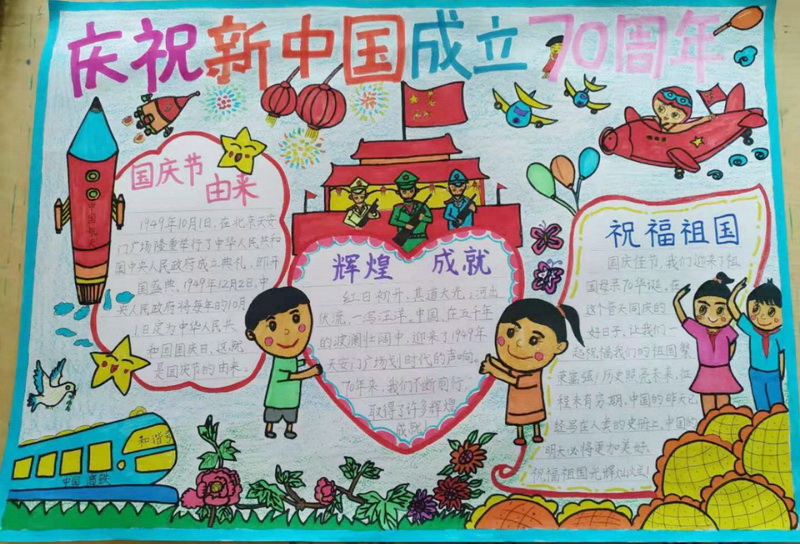 庆祝新中国成立70周年
国庆节
由来
1949年10月1日,在北京天安
门广场隆重举行了中华人民共和
国中央人民政府成立典礼,即开
国盛典,1949年12月2日,中
央人民政府将每年的10月
1日定为中华人民共
和国国庆日,这就
是国庆节的由来。
中国航天
辉煌 成就
红日初升,其道大光;河出
伏流,一泻汪洋。中国,在五十年
的波澜壮阔中,迎来了1949年
天安门广场划时代的声响。
70年来,我们不断前行,
取得了许多辉煌
成就!
祝福祖国
国庆佳节,我们迎来了祖
国母亲70华诞。在
这个普天同庆的
好日子,让我们一
起祝福我们的祖国繁
荣富强!历史照亮未来,征
程未有穷期,中国的昨天已
经写在人类的史册上,中国的
明天必将更加美好。
祝福祖国光辉
和谐号
中国 高铁